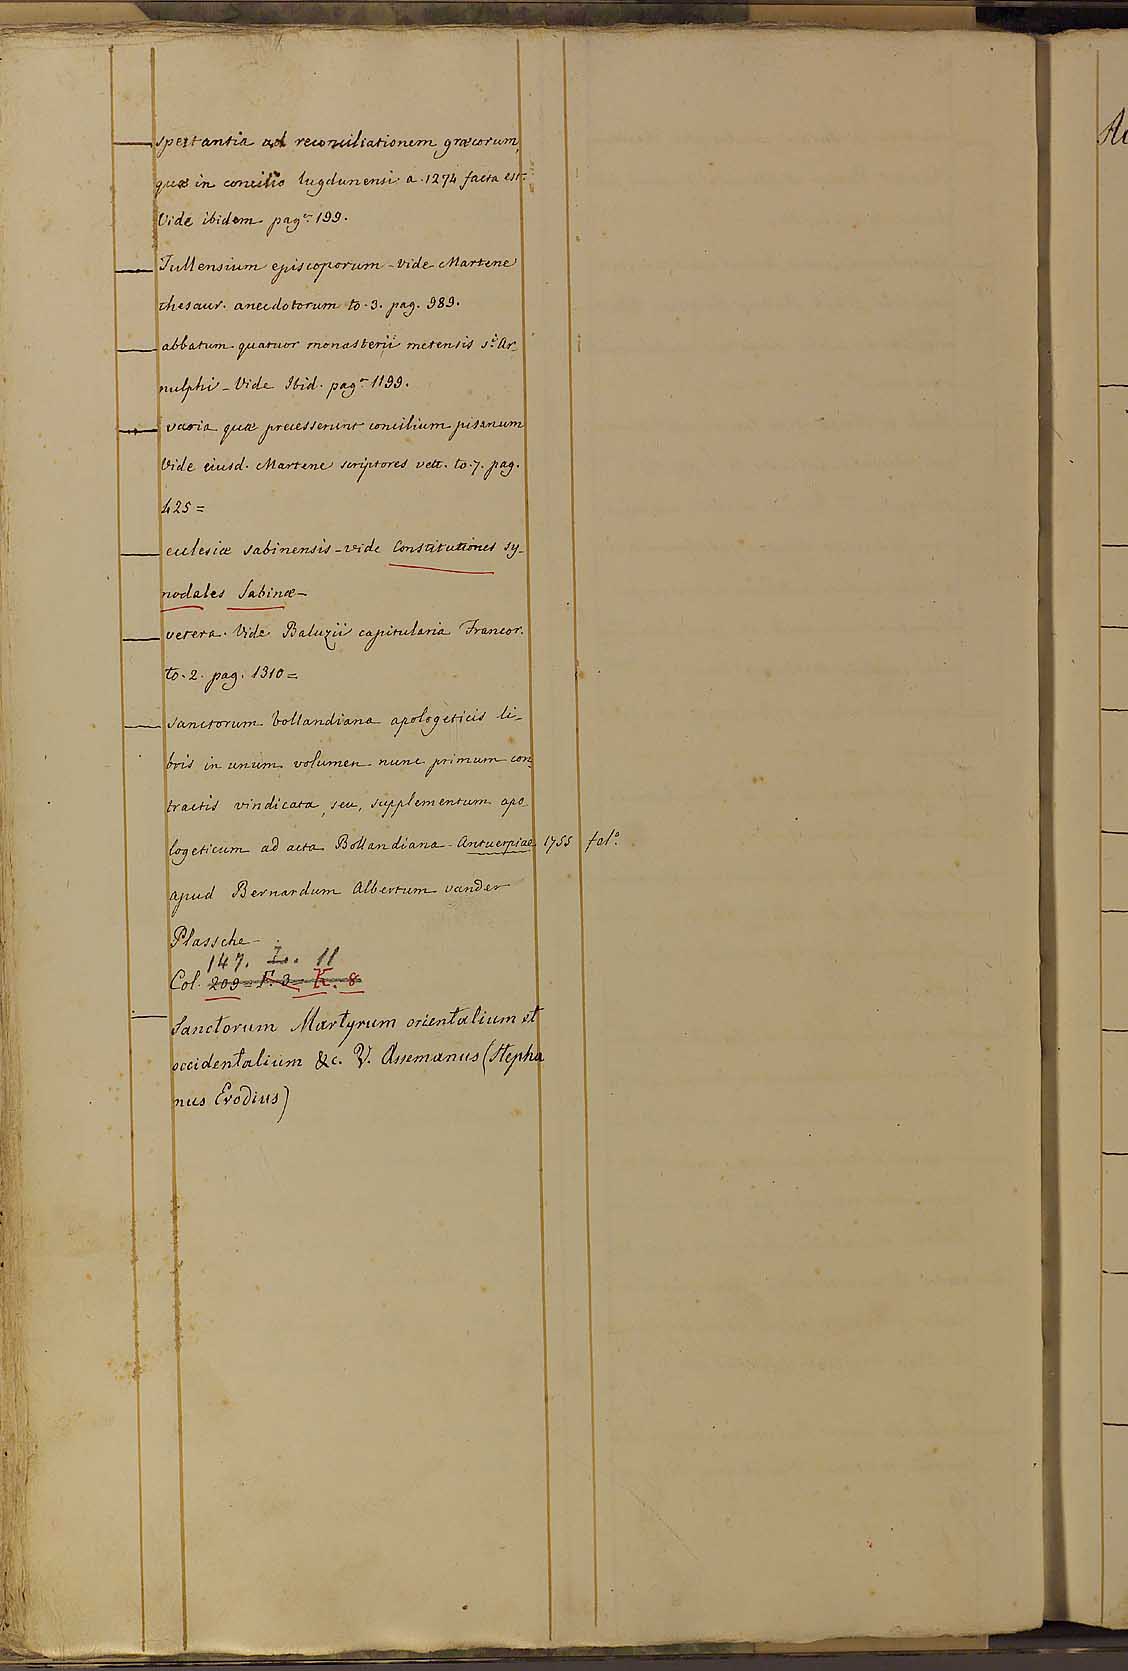 — spectantia ad reconciliationem græcorum,
quæ in concilio lugdunensi a. 1274 facta est=
Vide ibidem pag.ª 199.
— Tullensium episcoporum - vide Martene
thesaur. anecdotorum to. 3. pag. 989.
— abbatum quatuor monasterii metensis s.ⁱ Ar-
nulphi - Vide Ibid. pag.ª 1199.
— varia quæ precesserunt concilium pisanum
Vide eiusd. Martene scriptores vett. to. 7. pag.
425 =
— ecclesiæ sabinensis - vide Constitutiones sy-
nodales Sabinæ -
— vetera. Vide Baluzii capitularia Francor.
to. 2. pag. 1310 =
— sanctorum bollandiana apologeticis li-
bris in unum volumen nunc primum con-
tractis vindicata, seu, supplementum apo
logeticum ad acta Bollandiana - Antuerpiae 1755 fol.º
apud Bernardum Albertum vander
Plassche -
147. I. 11
Col. 209 = F. 3 - K. 8
— Sanctorum Martyrum orientalium et
occidentalium &c. V. Assemanus (Stepha
nus Evodius)